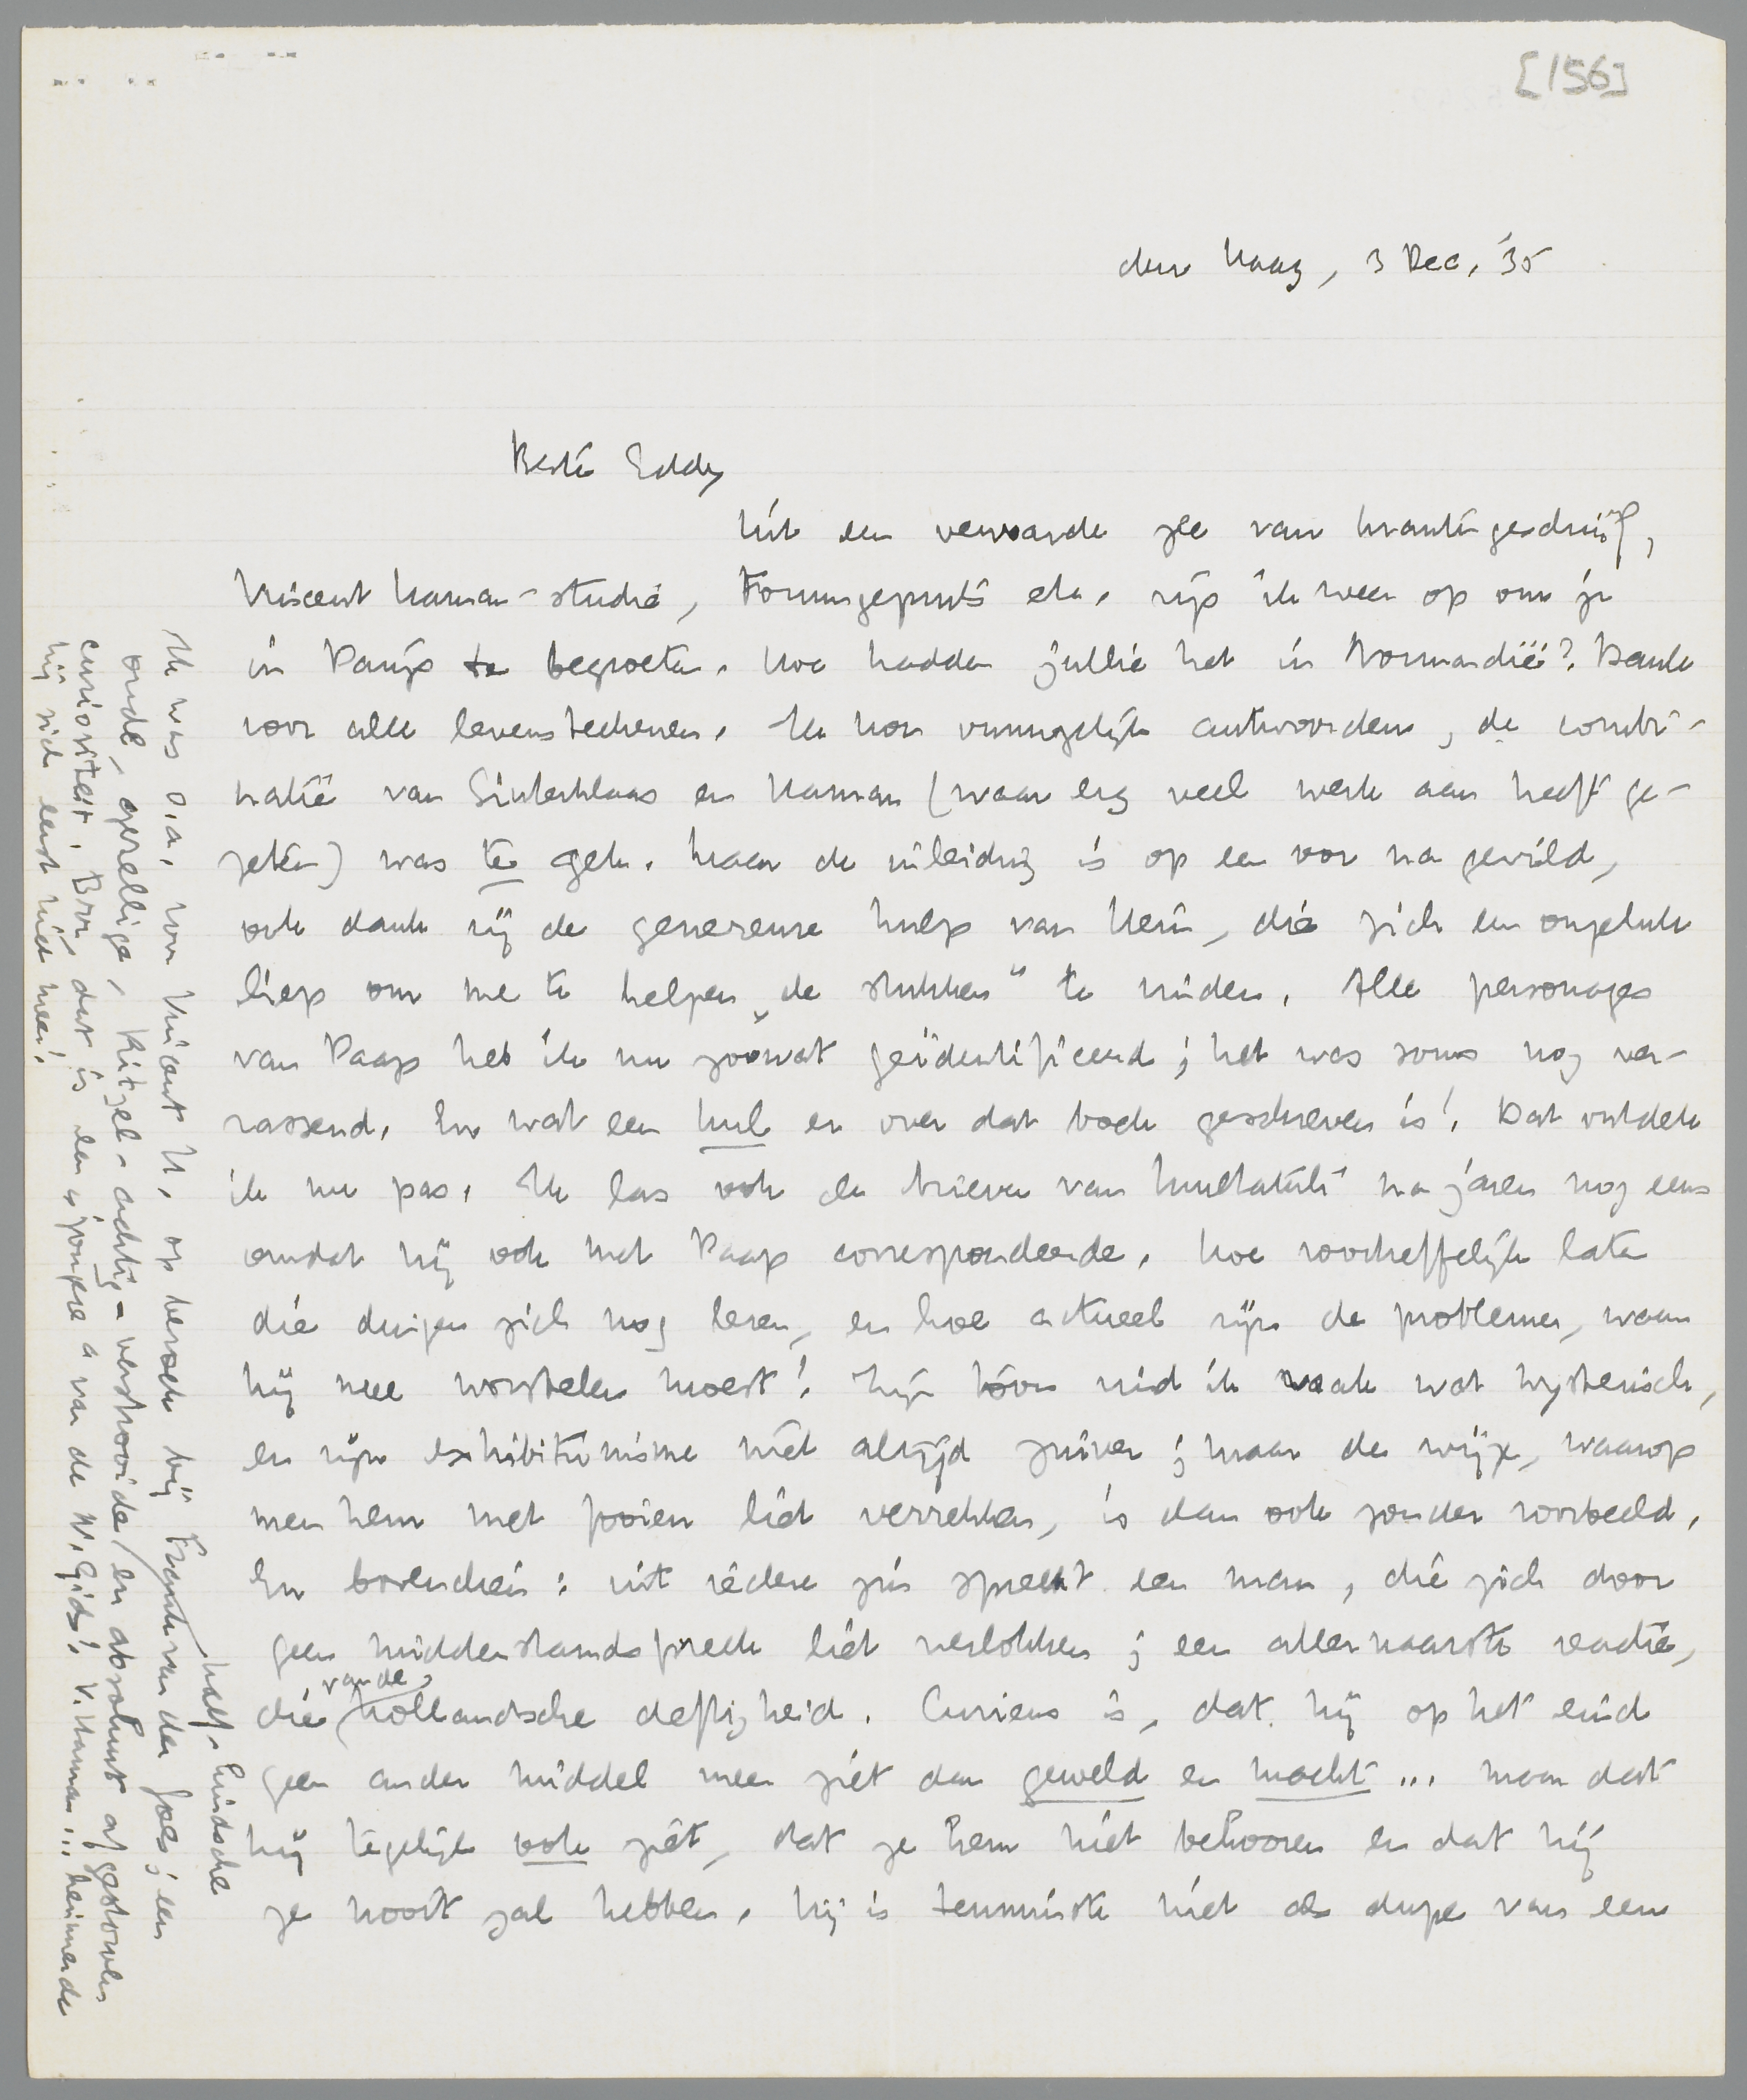 [156]
den Haag, 3 Dec. '35
Beste Eddy
Uit een verwarde zee van krantengeschrijf,
Vincent Haman-studie, Forumgepruts etc. rijs ik weer op om je
in Parijs te begroeten. Hoe hadden jullie het in Normandië? Dank
voor alle levensteekenen. Ik kon onmogelijk antwoorden, de combi-
natie van Sinterklaas en Haman (waar erg veel werk aan heeft ge-
zeten) was te gek. Maar de inleiding is op een vor na gevild,
ook dank zij de genereuse hulp van Hein, die zich een ongeluk
liep om me te helpen „de stukken” te vinden. Alle personages
van Paap heb ik nu zoowat geïdentificeerd; het was soms nog ver-
rassend. En wat een hul er over dat boek geschreven is! Dat ontdek
ik nu pas. Ik las ook de brieven van Multatuli na jaren nog eens
omdat hij ook met Paap correspondeerde. Hoe voortreffelijk laten
die dingen zich nog lezen, en hoe actueel zijn de problemen, waar
hij mee worstelen moest! Zijn toon vind ik vaak wat hysterisch,
en zijn exhibitionisme niet altijd zuiver; maar de wijze, waarop
men hem met fooien liet verrekken, is dan ook zonder voorbeeld.
En bovendien: uit iedere zin spreekt een man, die zich door
geen middenstandsfrase liet verlokken; een allernaarste reactie,
die van de hollandsche deftigheid. Curieus is, dat hij op het eind
geen ander middel meer ziet dan geweld en macht... maar dat
hij tegelijk ook ziet, dat ze hem niet behooren en dat hij
ze nooit zal hebben. Hij is tenminste niet de dupe van een
Ik was o.a. voor Vincent H. op bezoek bij Frank van der Goes; een
half-kindsche
oude, gezellige, Ritzel-achtig-verstrooide, en absoluut afgestorven
curiositeit. Brr, dat is een „jongere” van de N. Gids! V. Haman... herinnerde
hij zich eerst niet meer!